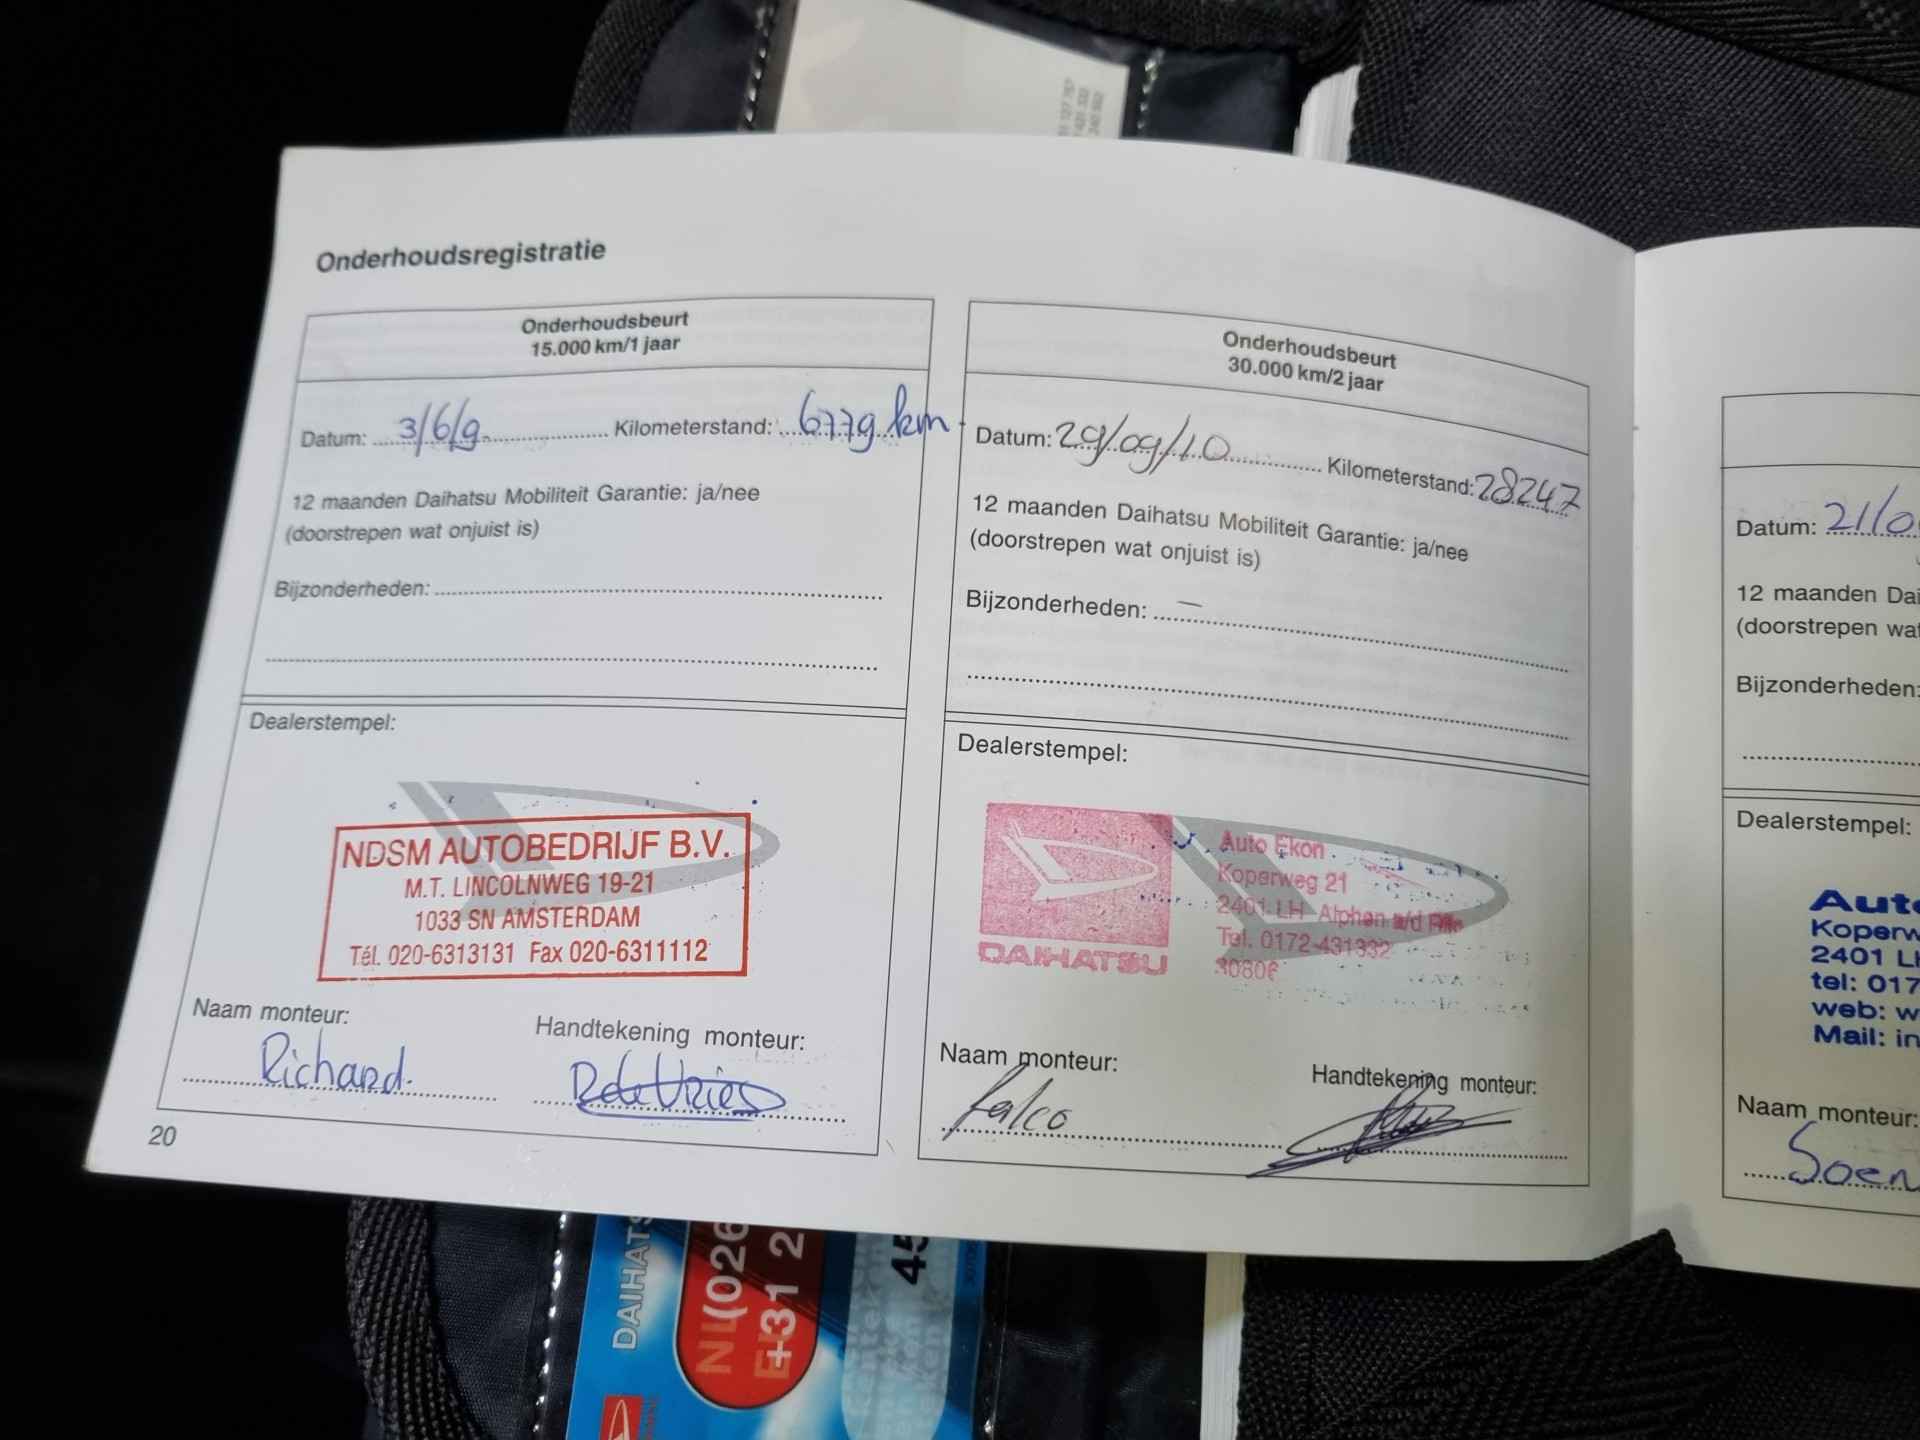 Onderhoudsregistratie
Onderhoudsbeurt
15.000 km/1 jaar
Datum: 3/6/9. Kilometerstand: 6779 km
12 maanden Daihatsu Mobiliteit Garantie: ja/nee
(doorstrepen wat onjuist is)
Bijzonderheden:
Dealerstempel:
NDSM AUTOBEDRIJF B.V.
M.T. LINCOLNWEG 19-21
1033 SN AMSTERDAM
Tél. 020-6313131 Fax 020-6311112
Naam monteur: Handtekening monteur:
Richard. R de Vries
20
Onderhoudsbeurt
30.000 km/2 jaar
Datum: 29/09/10 Kilometerstand: 28247
12 maanden Daihatsu Mobiliteit Garantie: ja/nee
(doorstrepen wat onjuist is)
Bijzonderheden: —
Dealerstempel:
DAIHATSU
Auto Ekon
Koperweg 21
2401 LH Alphen a/d Rijn
Tel. 0172-431332
30806
Naam monteur: Handtekening monteur:
Falco
Datum: 21/0
12 maanden Dai
(doorstrepen wat
Bijzonderheden:
Dealerstempel:
Auto
Koperw
2401 LH
tel: 017
web: w
Mail: in
Naam monteur:
Soen
DAIHATS
NL (026
E +31 2
45